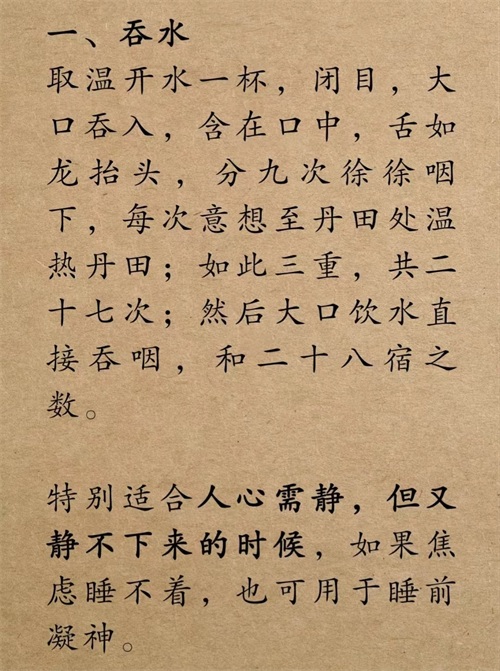 一、吞水
取温开水一杯，闭目，大
口吞入，含在口中，舌如
龙抬头，分九次徐徐咽
下，每次意想至丹田处温
热丹田；如此三重，共二
十七次；然后大口饮水直
接吞咽，和二十八宿之
数。
特别适合人心需静，但又
静不下来的时候，如果焦
虑睡不着，也可用于睡前
凝神。